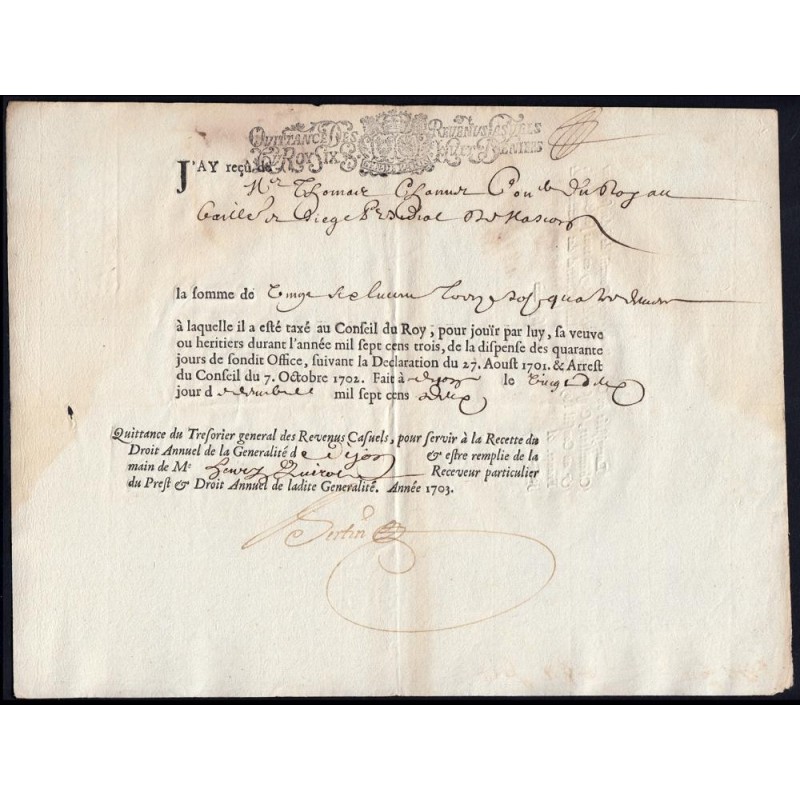 QUITTANCE DES REVENUS CASUELS
DU ROY SIX S. HUIT DENIERS
J'AY reçû de
Mr Thomas Chanut Con.er du Roy au
Baill.e & Siege Presidial de Mascon
la somme de Vingt six livres treize sols quatre deniers
à laquelle il a esté taxé au Conseil du Roy, pour jouïr par luy, sa veuve
ou heritiers durant l'année mil sept cens trois, de la dispense des quarante
jours de sondit Office, suivant la Declaration du 27. Aoust 1701. & Arrest
du Conseil du 7. Octobre 1702. Fait à Dijon le Vingt
jour d mil sept cens deux
Quittance du Tresorier general des Revenus Casuels, pour servir à la Recette du
Droit Annuel de la Generalité d e Dijon & estre remplie de la
main de Me Henry Receveur particulier
du Prest & Droit Annuel de ladite Generalité. Année 1703.
Bertin